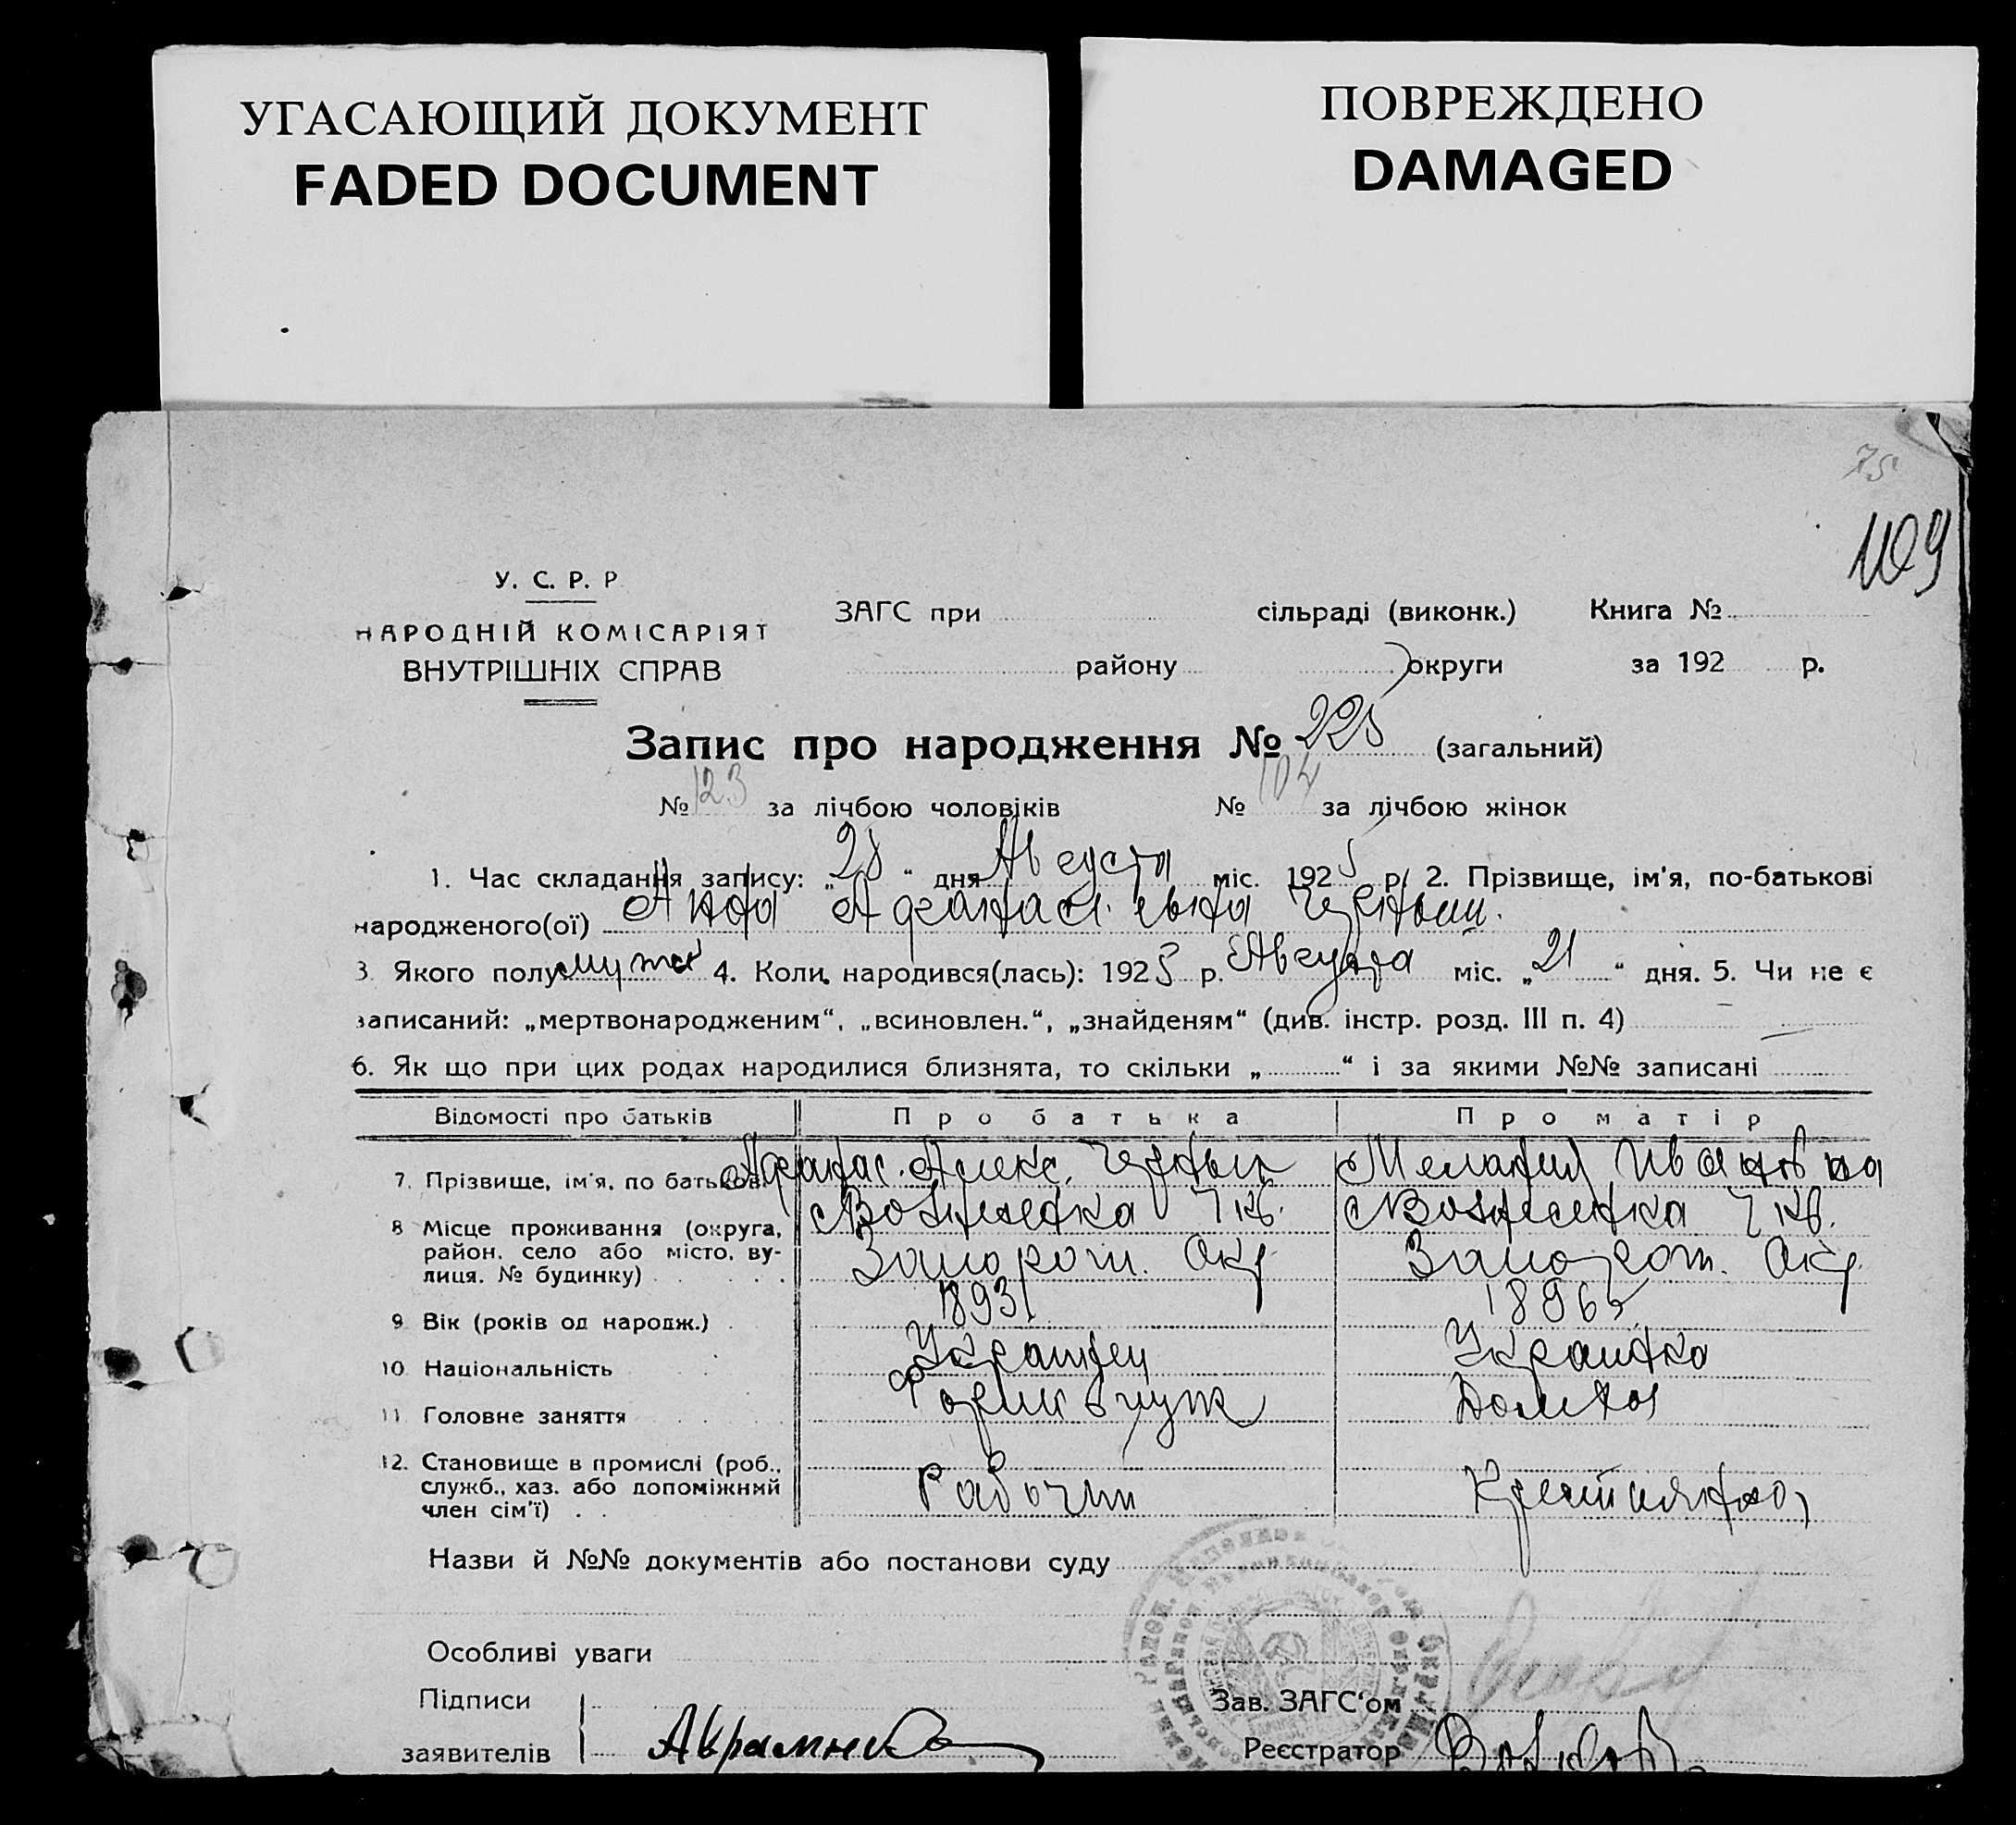 УГАСАЮЩИЙ ДОКУМЕНТ
FADED DOCUMENT
ПОВРЕЖДЕНО
DAMAGED
75
109
У. С. Р. Р
НАРОДНІЙ КОМІСАРІЯТ
ВНУТРІШНІХ СПРАВ
ЗАГС при сільраді (виконк.) Книга №
району округи за 192 р.
Запис про народження № 225 (загальний)
№ 123 за лічбою чоловіків № 104 за лічбою жінок
1. Час складання запису: „28“ дня Августа міс. 1925 р. 2. Прізвище, ім'я, по-батькові
народженого(ої) Анна Афанасьевна
3. Якого полу 4. Коли народився(лась): 1925 р. Августа міс. „21“ дня. 5. Чи не є
записаний: „мертвонародженим“, „всиновлен.“, „знайденям“ (див. інстр. розд. III п. 4)
6. Як що при цих родах народилися близнята, то скільки „ “ і за якими №№ записані
Відомості про батьків Про батька Про матір
7. Прізвище, ім'я, по батькові Афанас. Алекс. Мелания Ивановна
8 Місце проживання (округа, район, село або місто, вулиця, № будинку) Вознесенка Вознесенка
Запорож. Окр Запорож. Окр.
9 Вік (років од народж.) 1893 1896
10 Національність Украинец Украинка
11 Головне заняття Домжоз
12. Становище в промислі (роб., служб., хаз. або допоміжний член сім'ї) Рабочий Крестиянка
Назви й №№ документів або постанови суду
Особливі уваги
Підписи
заявителів
Зав. ЗАГС'ом
Реєстратор